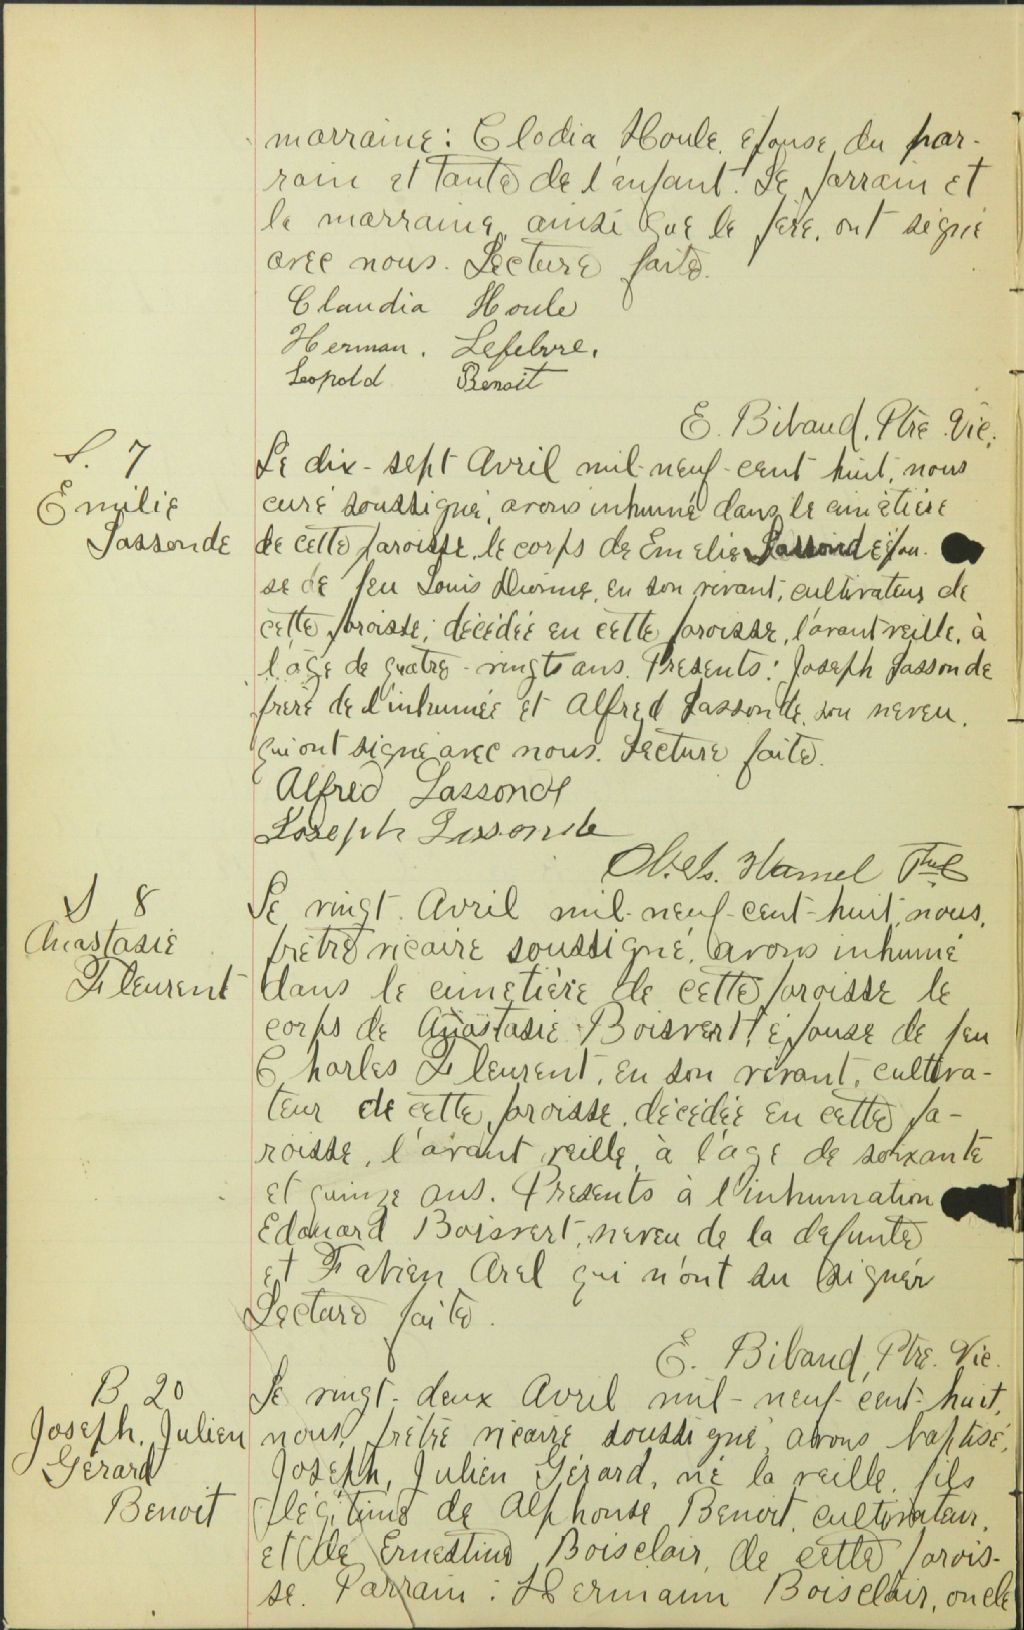 marraine: Clodia Houle, épouse du par-
rain et tante de l'enfant. Le parrain et
la marraine, ainsi que le père, ont signé
avec nous. Lecture faite.
Claudia Houle
Herman. Lefebvre.
Leopold Benoit
E. Bibaud, Ptre. Vic.
S. 7
Emilie
Lassonde
Le dix-sept Avril mil-neuf-cent huit, nous
curé soussigné, avons inhumé dans le cimetière
de cette paroisse, le corps de Emelie Lassonde épou-
se de feu Louis Dionne, en son vivant, cultivateur de
cette paroisse, décédée en cette paroisse, l'avant veille, à
l'âge de quatre-vingts ans. Présents: Joseph Lassonde
frère de l'inhumée et Alfred Lassonde, son neveu,
qui ont signé avec nous. Lecture faite.
Alfred Lassonde
Joseph Lassonde
Hamel Ptre
S 8
Anastasie
Fleurent
Le vingt Avril mil-neuf-cent-huit, nous,
prêtre vicaire soussigné, avons inhumé
dans le cimetière de cette paroisse le
corps de Anastasie Boisvert, épouse de feu
Charles Fleurent, en son vivant, cultiva-
teur de cette paroisse, décédée en cette pa-
roisse, l'avant veille, à l'âge de soixante
et quinze ans. Présents à l'inhumation
Edouard Boisvert, neveu de la défunte
et Fabien Arel qui n'ont su signer
Lecture faite.
E. Bibaud, Ptre. Vic.
B 20
Joseph, Julien
Gérard
Benoit
Le vingt-deux Avril mil-neuf-cent-huit,
nous, prêtre vicaire soussigné, avons baptisé,
Joseph, Julien Gérard, né la veille, fils
légitime de Alphonse Benoit, cultivateur,
et de Ernestine Boisclair, de cette parois-
se. Parrain: Hermann Boisclair, oncle